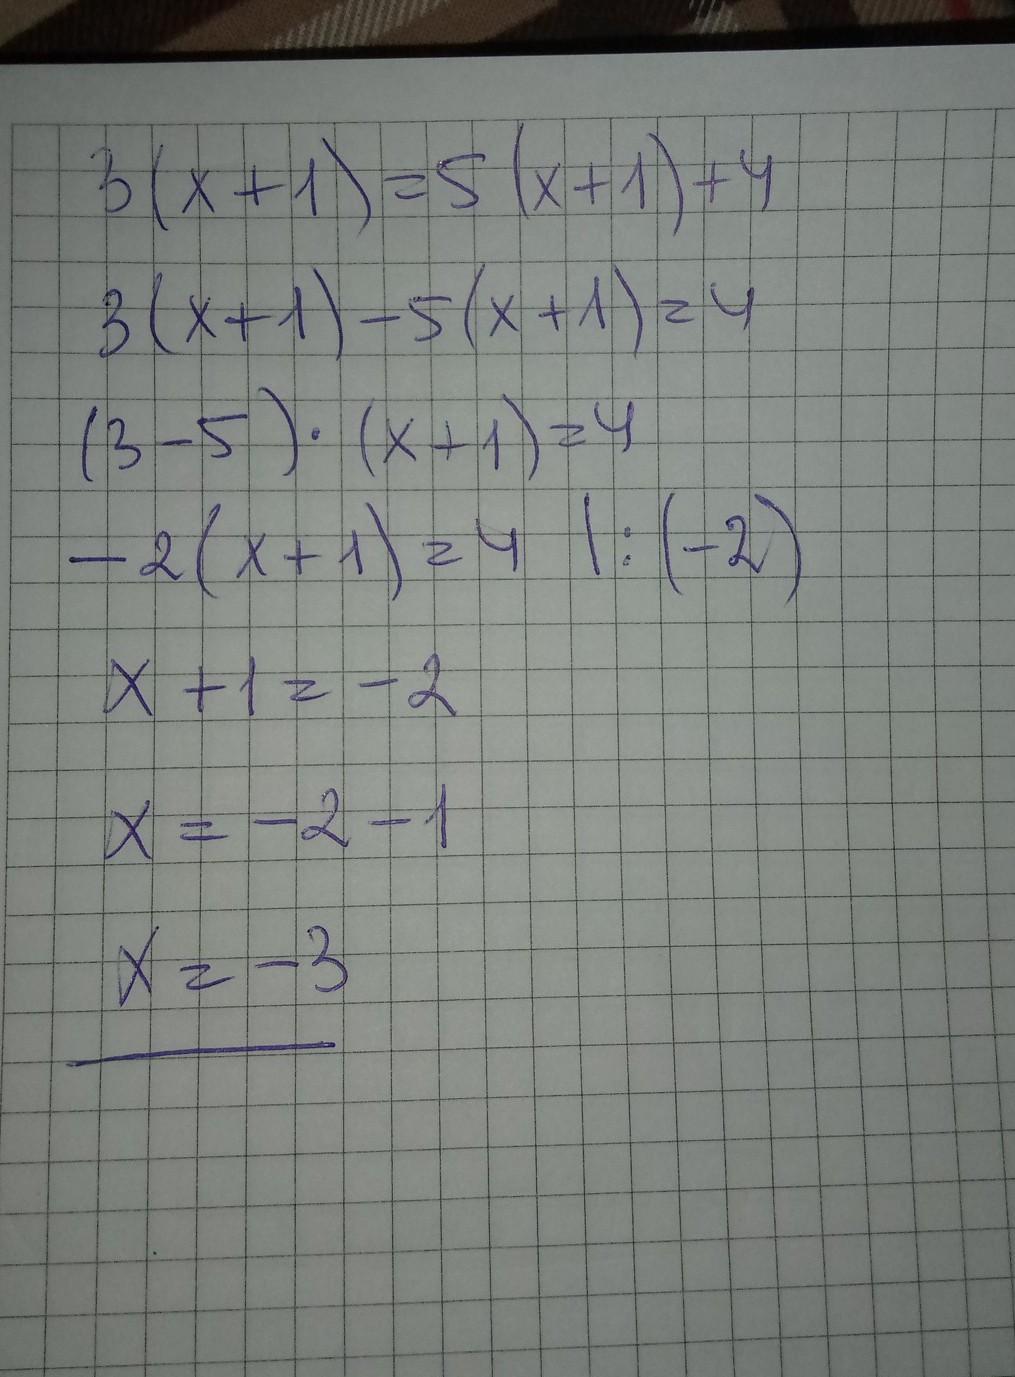 3(x+1)=5(x+1)+4
3(x+1)-5(x+1)=4
(3-5)·(x+1)=4
-2(x+1)=4 |:(-2)
x+1=-2
x=-2-1
x=-3